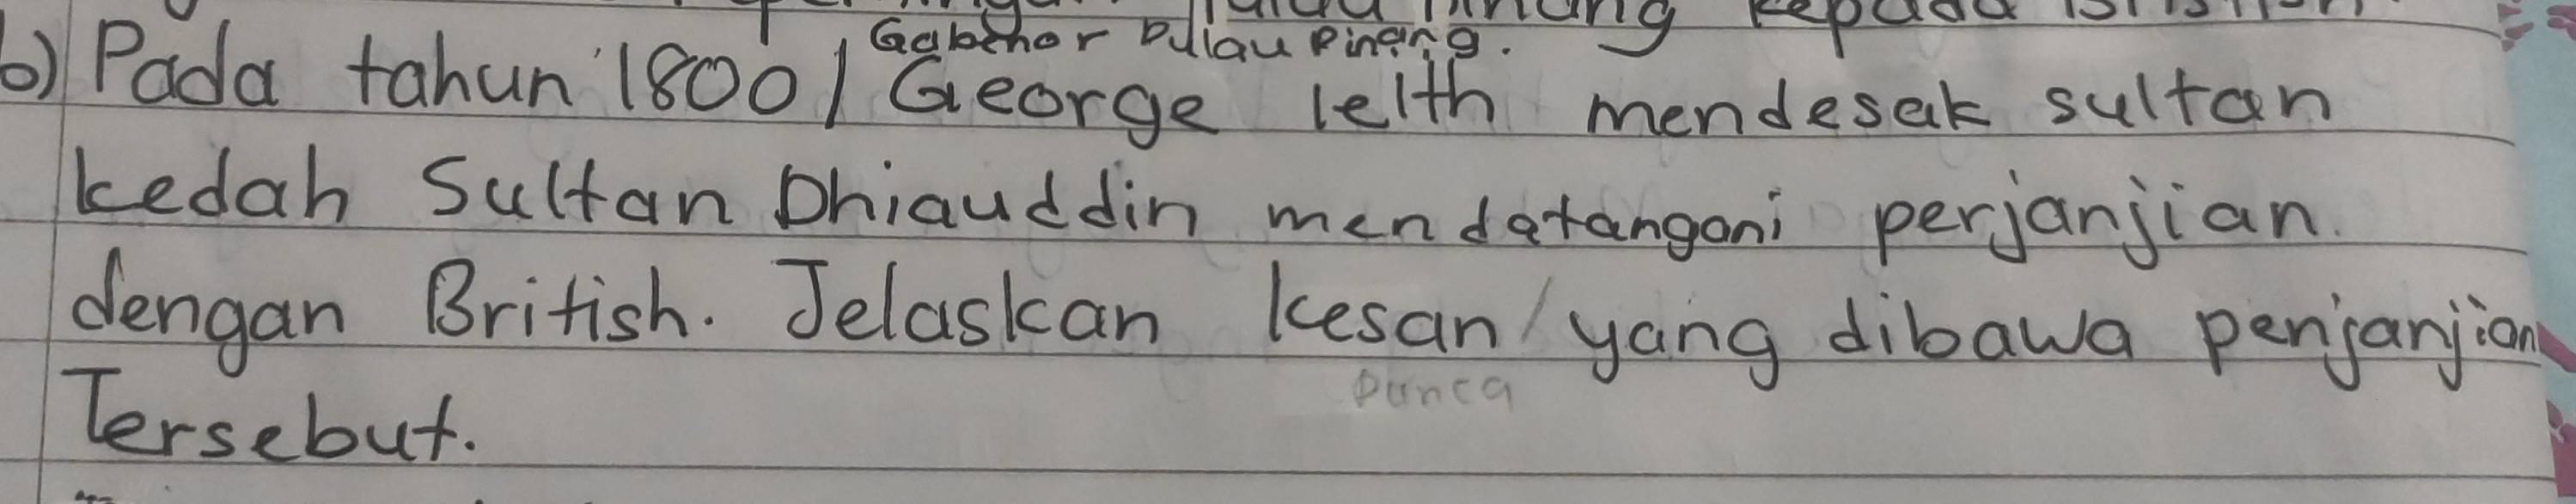 Gabenor Pulau Pinang.
b) Pada tahun 1800 / George leith mendesak sultan
kedah Sultan Dhiauddin mendatangani perjanjian
dengan British. Jelaskan kesan / yang dibawa penjanjian
Punca
Tersebut.